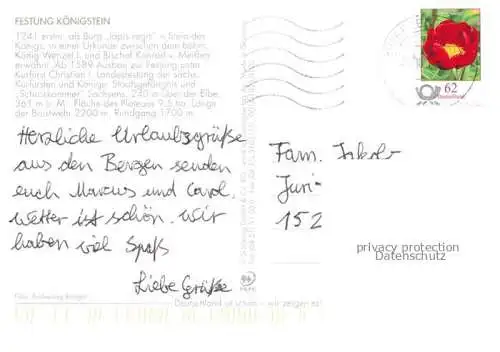 FESTUNG KÖNIGSTEIN
1241 erstm. als Burg „lapis regis" = Stein des
Königs, in einer Urkunde zwischen dem böhm.
König Wenzel I. und Bischof Konrad v. Meißen
erwähnt. Ab 1589 Ausbau zur Festung unter
Kurfürst Christian I. Landesfestung der sächs.
Kurfürsten und Könige. Staatsgefängnis und
„Schatzkammer" Sachsens. 240 m über der Elbe,
361 m ü. M. Fläche des Plateaus 9,5 ha. Länge
der Brustwehr 2200 m. Rundgang 1700 m.
62
Herzliche Urlaubsgrüße
aus den Bergen senden
euch Marcus und Carol.
Wetter ist schön. Wir
haben viel Spaß
Liebe Grüße
Fam. Jakob
Juri
152
privacy protection
Datenschutz
Deutschland ist schön – wir zeigen es!